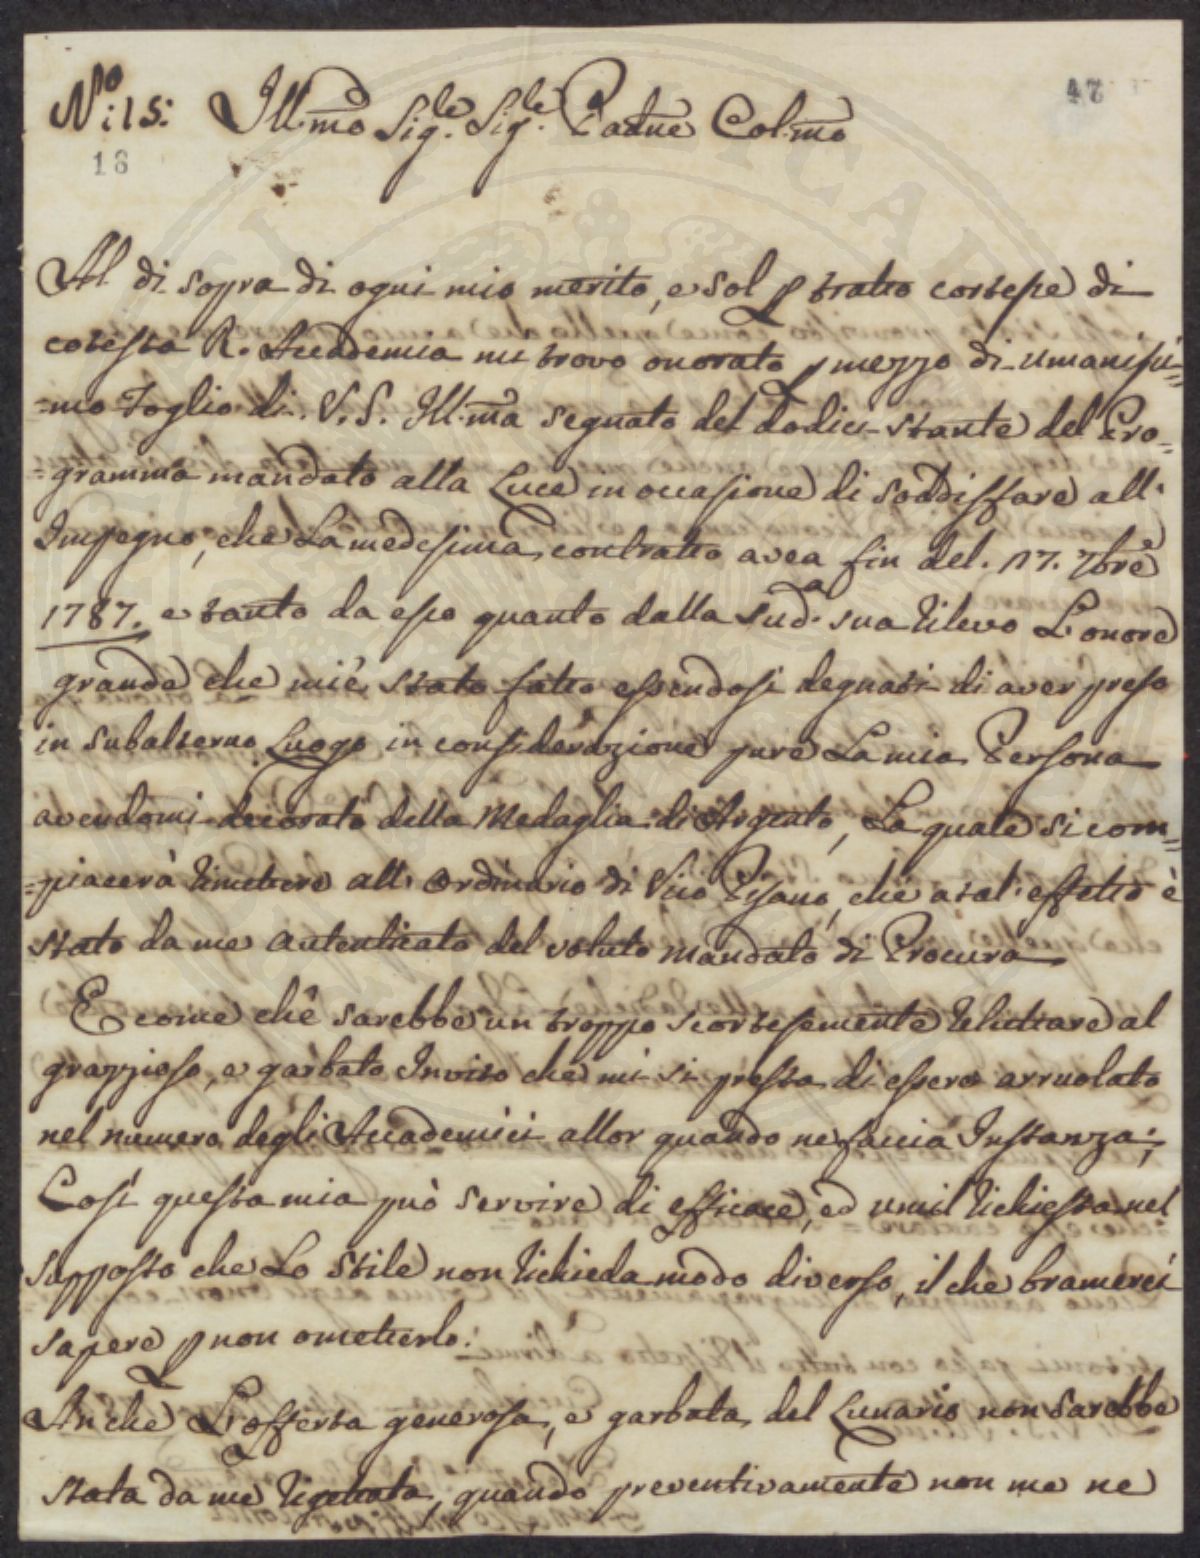 N.º: 15: Ill:mo Sig.le Sig.le Padne Col:mo
47
18
Al di sopra di ogni mio merito, e sol p tratto cortese di
cotesta R. Accademia mi trovo onorato p mezzo di umanissi=
=mo Foglio di V. S. Ill:ma segnato del dodici stante del Pro=
gramma mandato alla Luce in occasione di soddisfare all'
Impegno, che La medesima contratto avea fin del. 17. 7bre
1787. e tanto da esso quanto dalla sud.a sua rilevo L'onore
grande che mi è stato fatto essendosi degnati di aver preso
in subalterno Luogo in considerazione pure La mia Persona
avendomi decorato della Medaglia di Argento, La quale si com=
=piacerà rimettere all' Ordinario di Vico Pisano, che a tal' effetto è
stato da me autenticato del voluto mandato di Procura
E come che sarebbe un troppo scortesemente ricusare al
grazzioso, e garbato Invito che mi si presta di essere arruolato
nel numero degli Accademici allor quando ne faccia Instanza;
Così questa mia può servire di efficace, ed umil richiesta nel
supposto che Lo Stile non richieda modo diverso, il che bramerei
sapere p non ometterlo:
Anche L'offerta generosa, e garbata del Lunario non sarebbe
stata da me rigettata, quando preventivamente non me ne